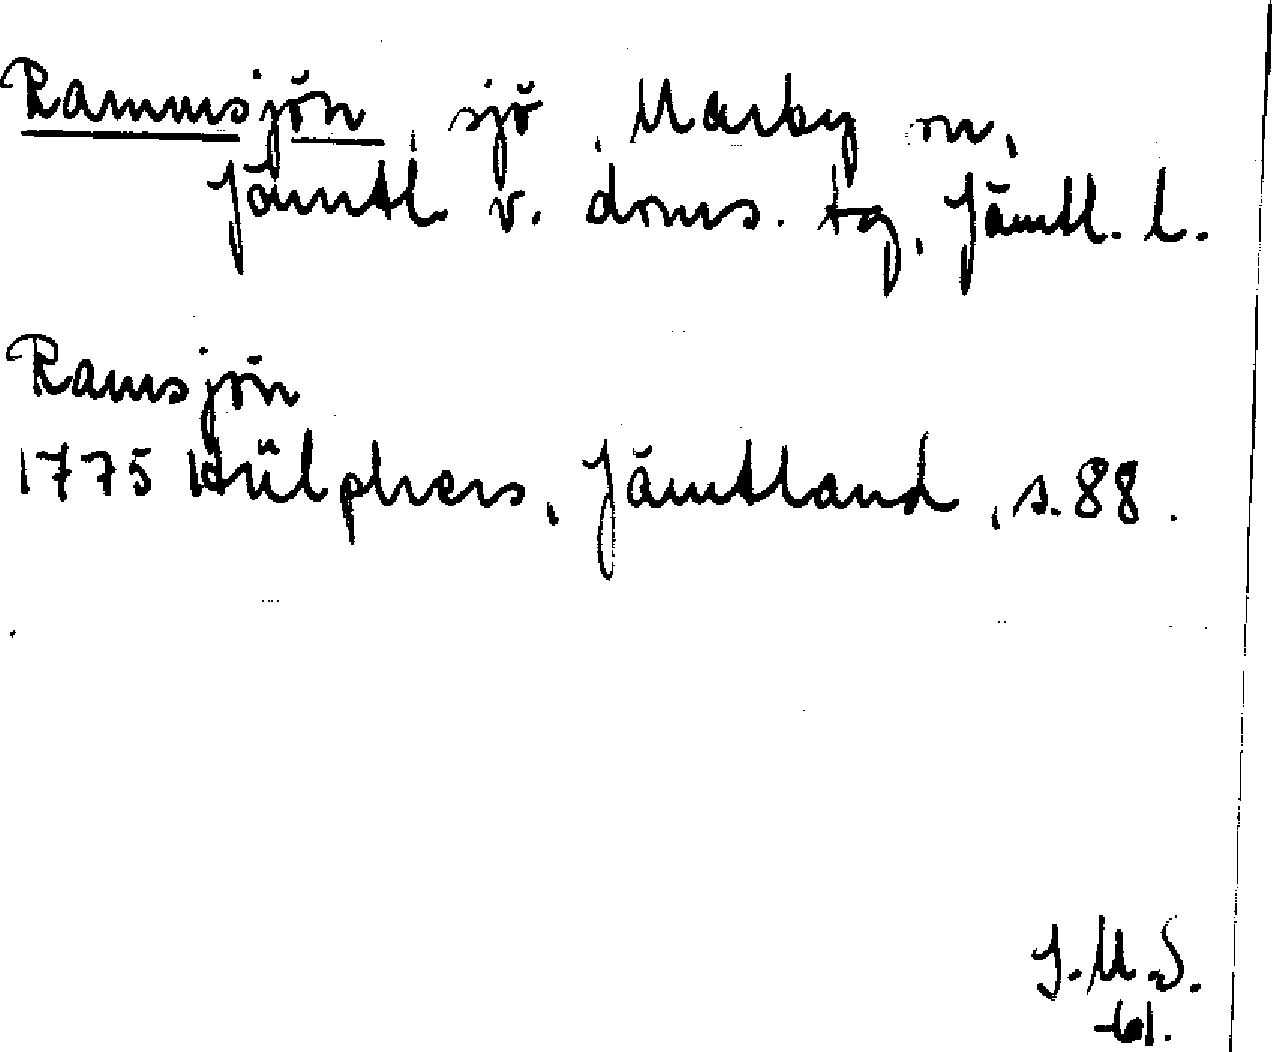 Rammsjön, sjö, Marby sn,
Jämtl. v. doms. tg, Jämtl. l.
Ramsjön
1775 Hülphers, Jämtland, s. 88.
J.M.S.
-61.